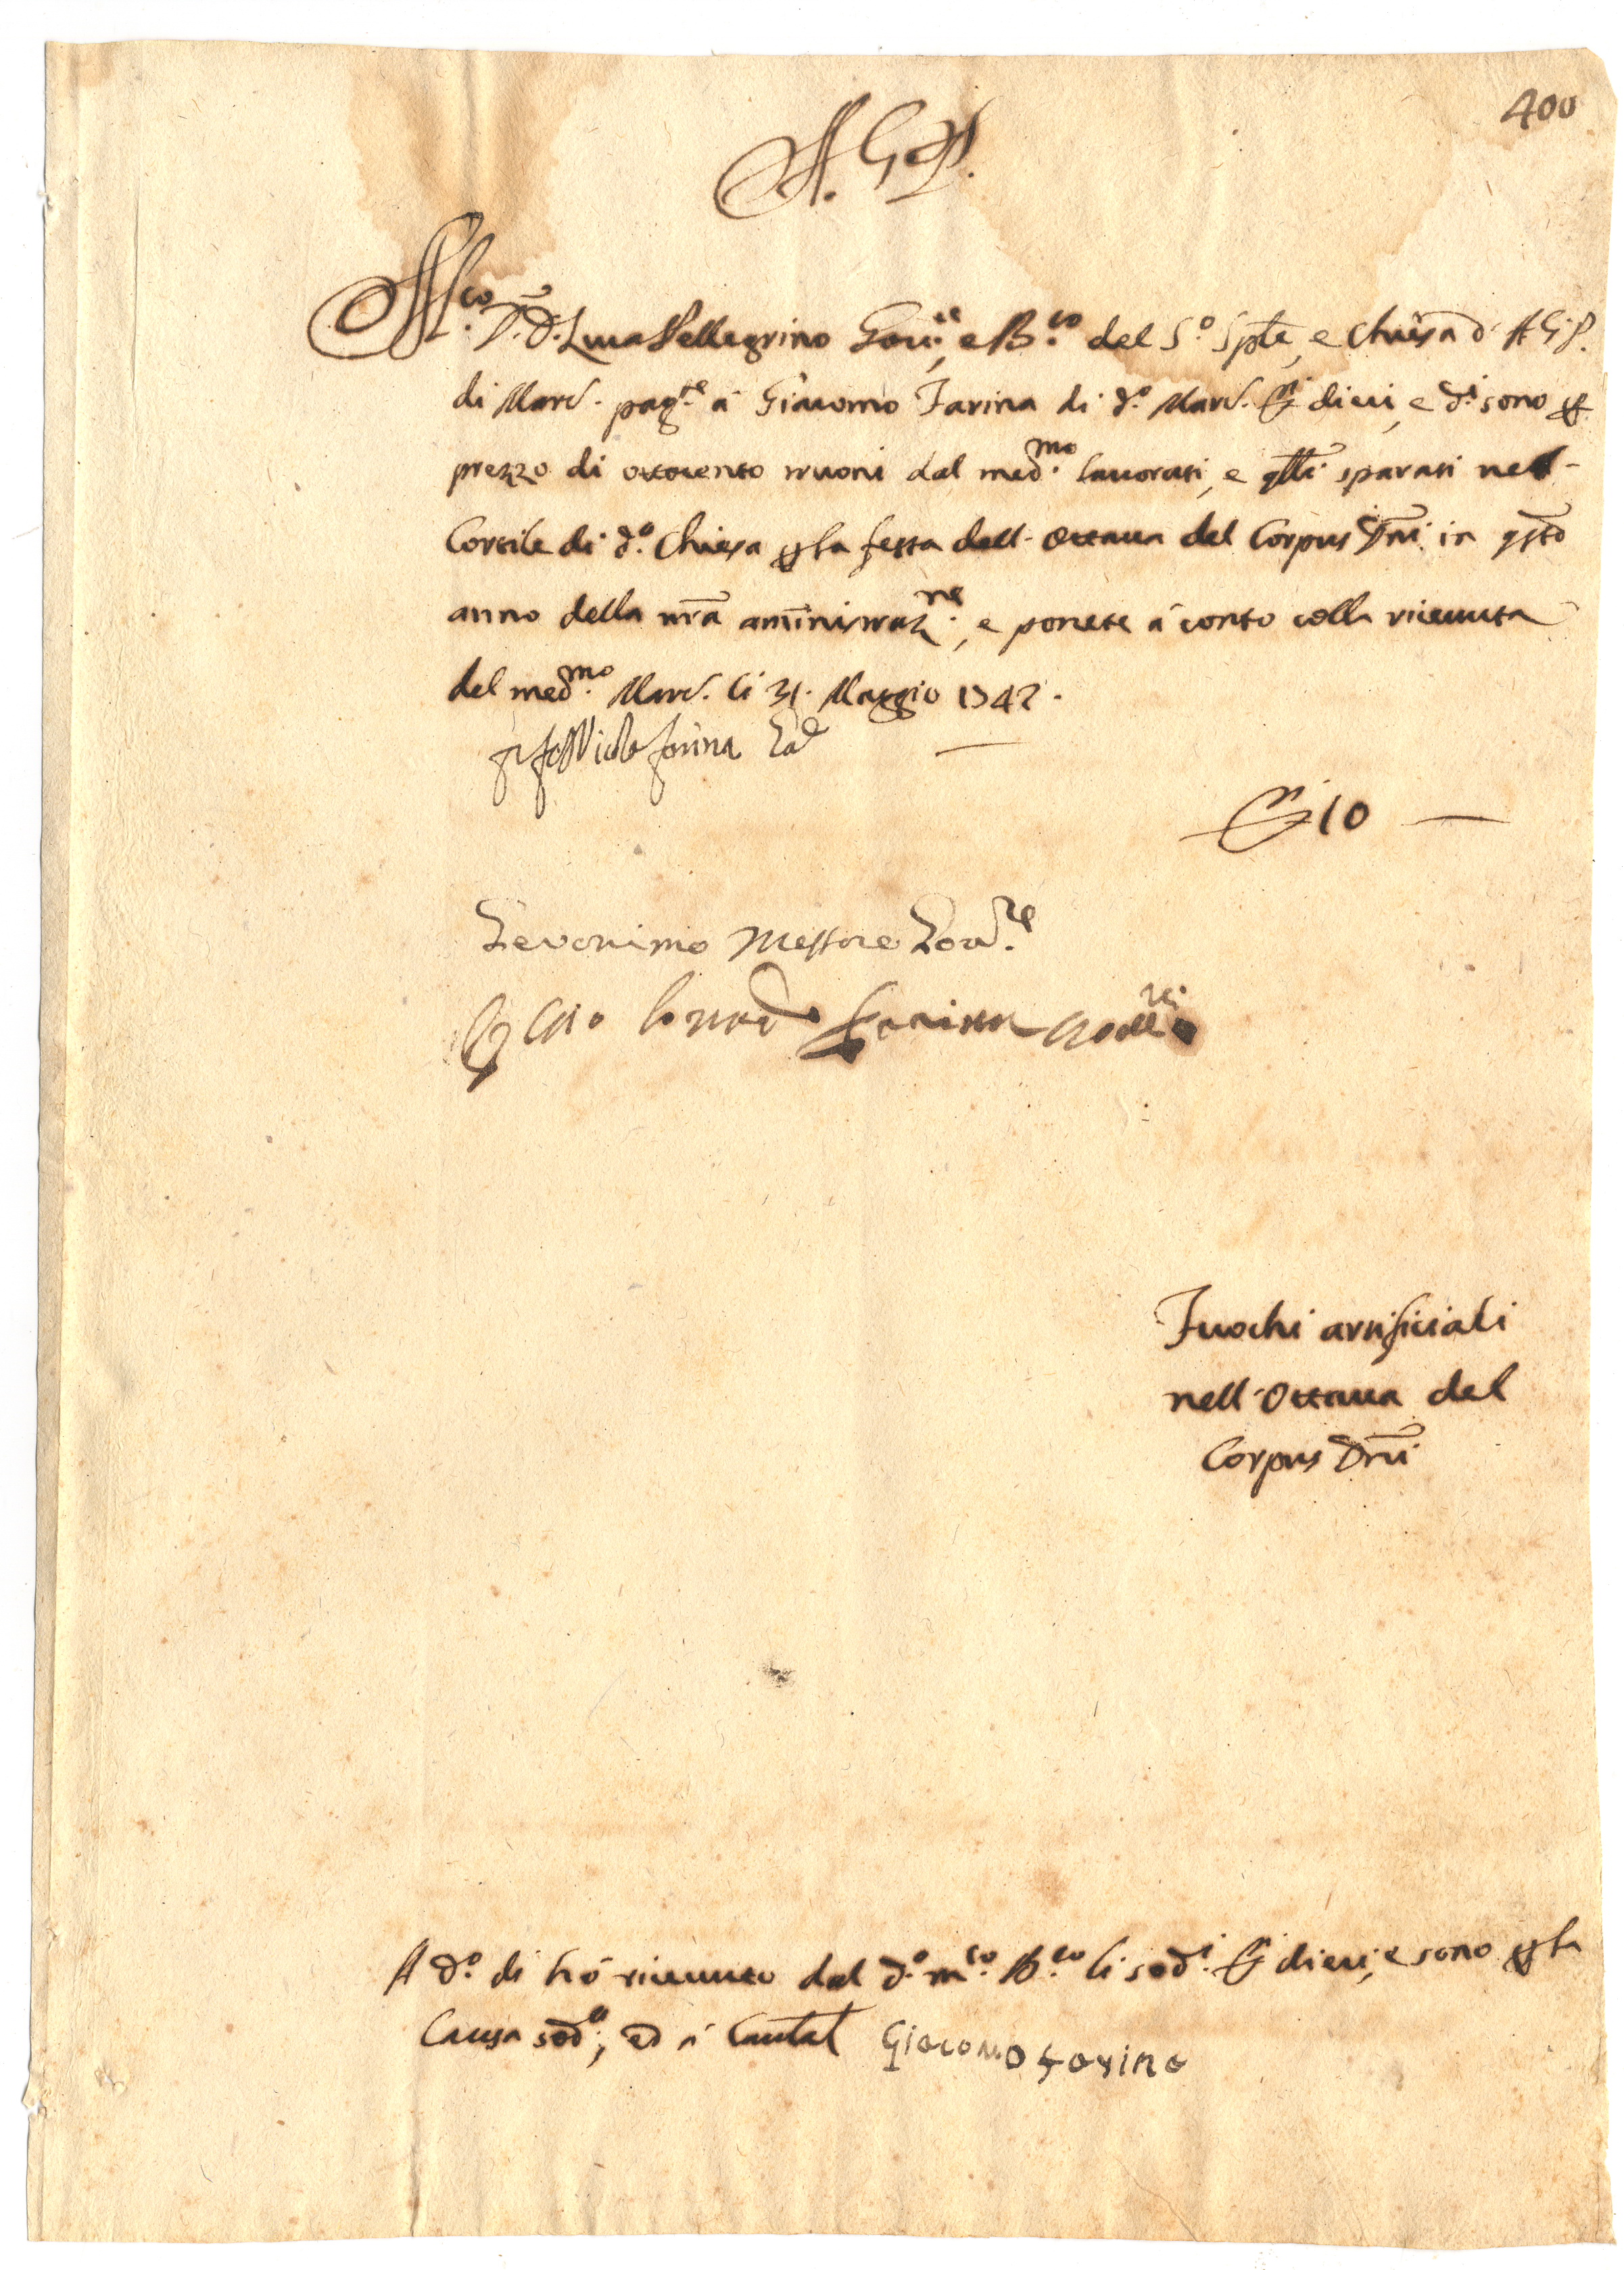 400
A. G. P.
M.co S.r D. Luca Pellegrino Gov.re, e B.ro del S.o Sple, e Chiesa d' A. G. P.
di Marc. pag.te à Giacomo Farina di d.o Marc. D.i dieci, e d.i sono p
prezzo di ottocento truoni dal med.mo lavorati, e qlli sparati nel-
Cortile di d.o Chiesa p la festa dell- Ottava del Corpus Dni in qsto
anno della nra amministraz.ne, e ponete à conto colla ricevuta
del med.mo Marc. li 31. Maggio 1742.
Farina
D.i 10 —
Geronimo Messore Gov.re
Fuochi artificiali
nell' Ottava del
Corpus Dni
A d.o dì hò ricevuto dal d.o m.co B.ro li sod.i D.i dieci, e sono p la
Causa sod.a; ed à Cautel Giacomo Farina